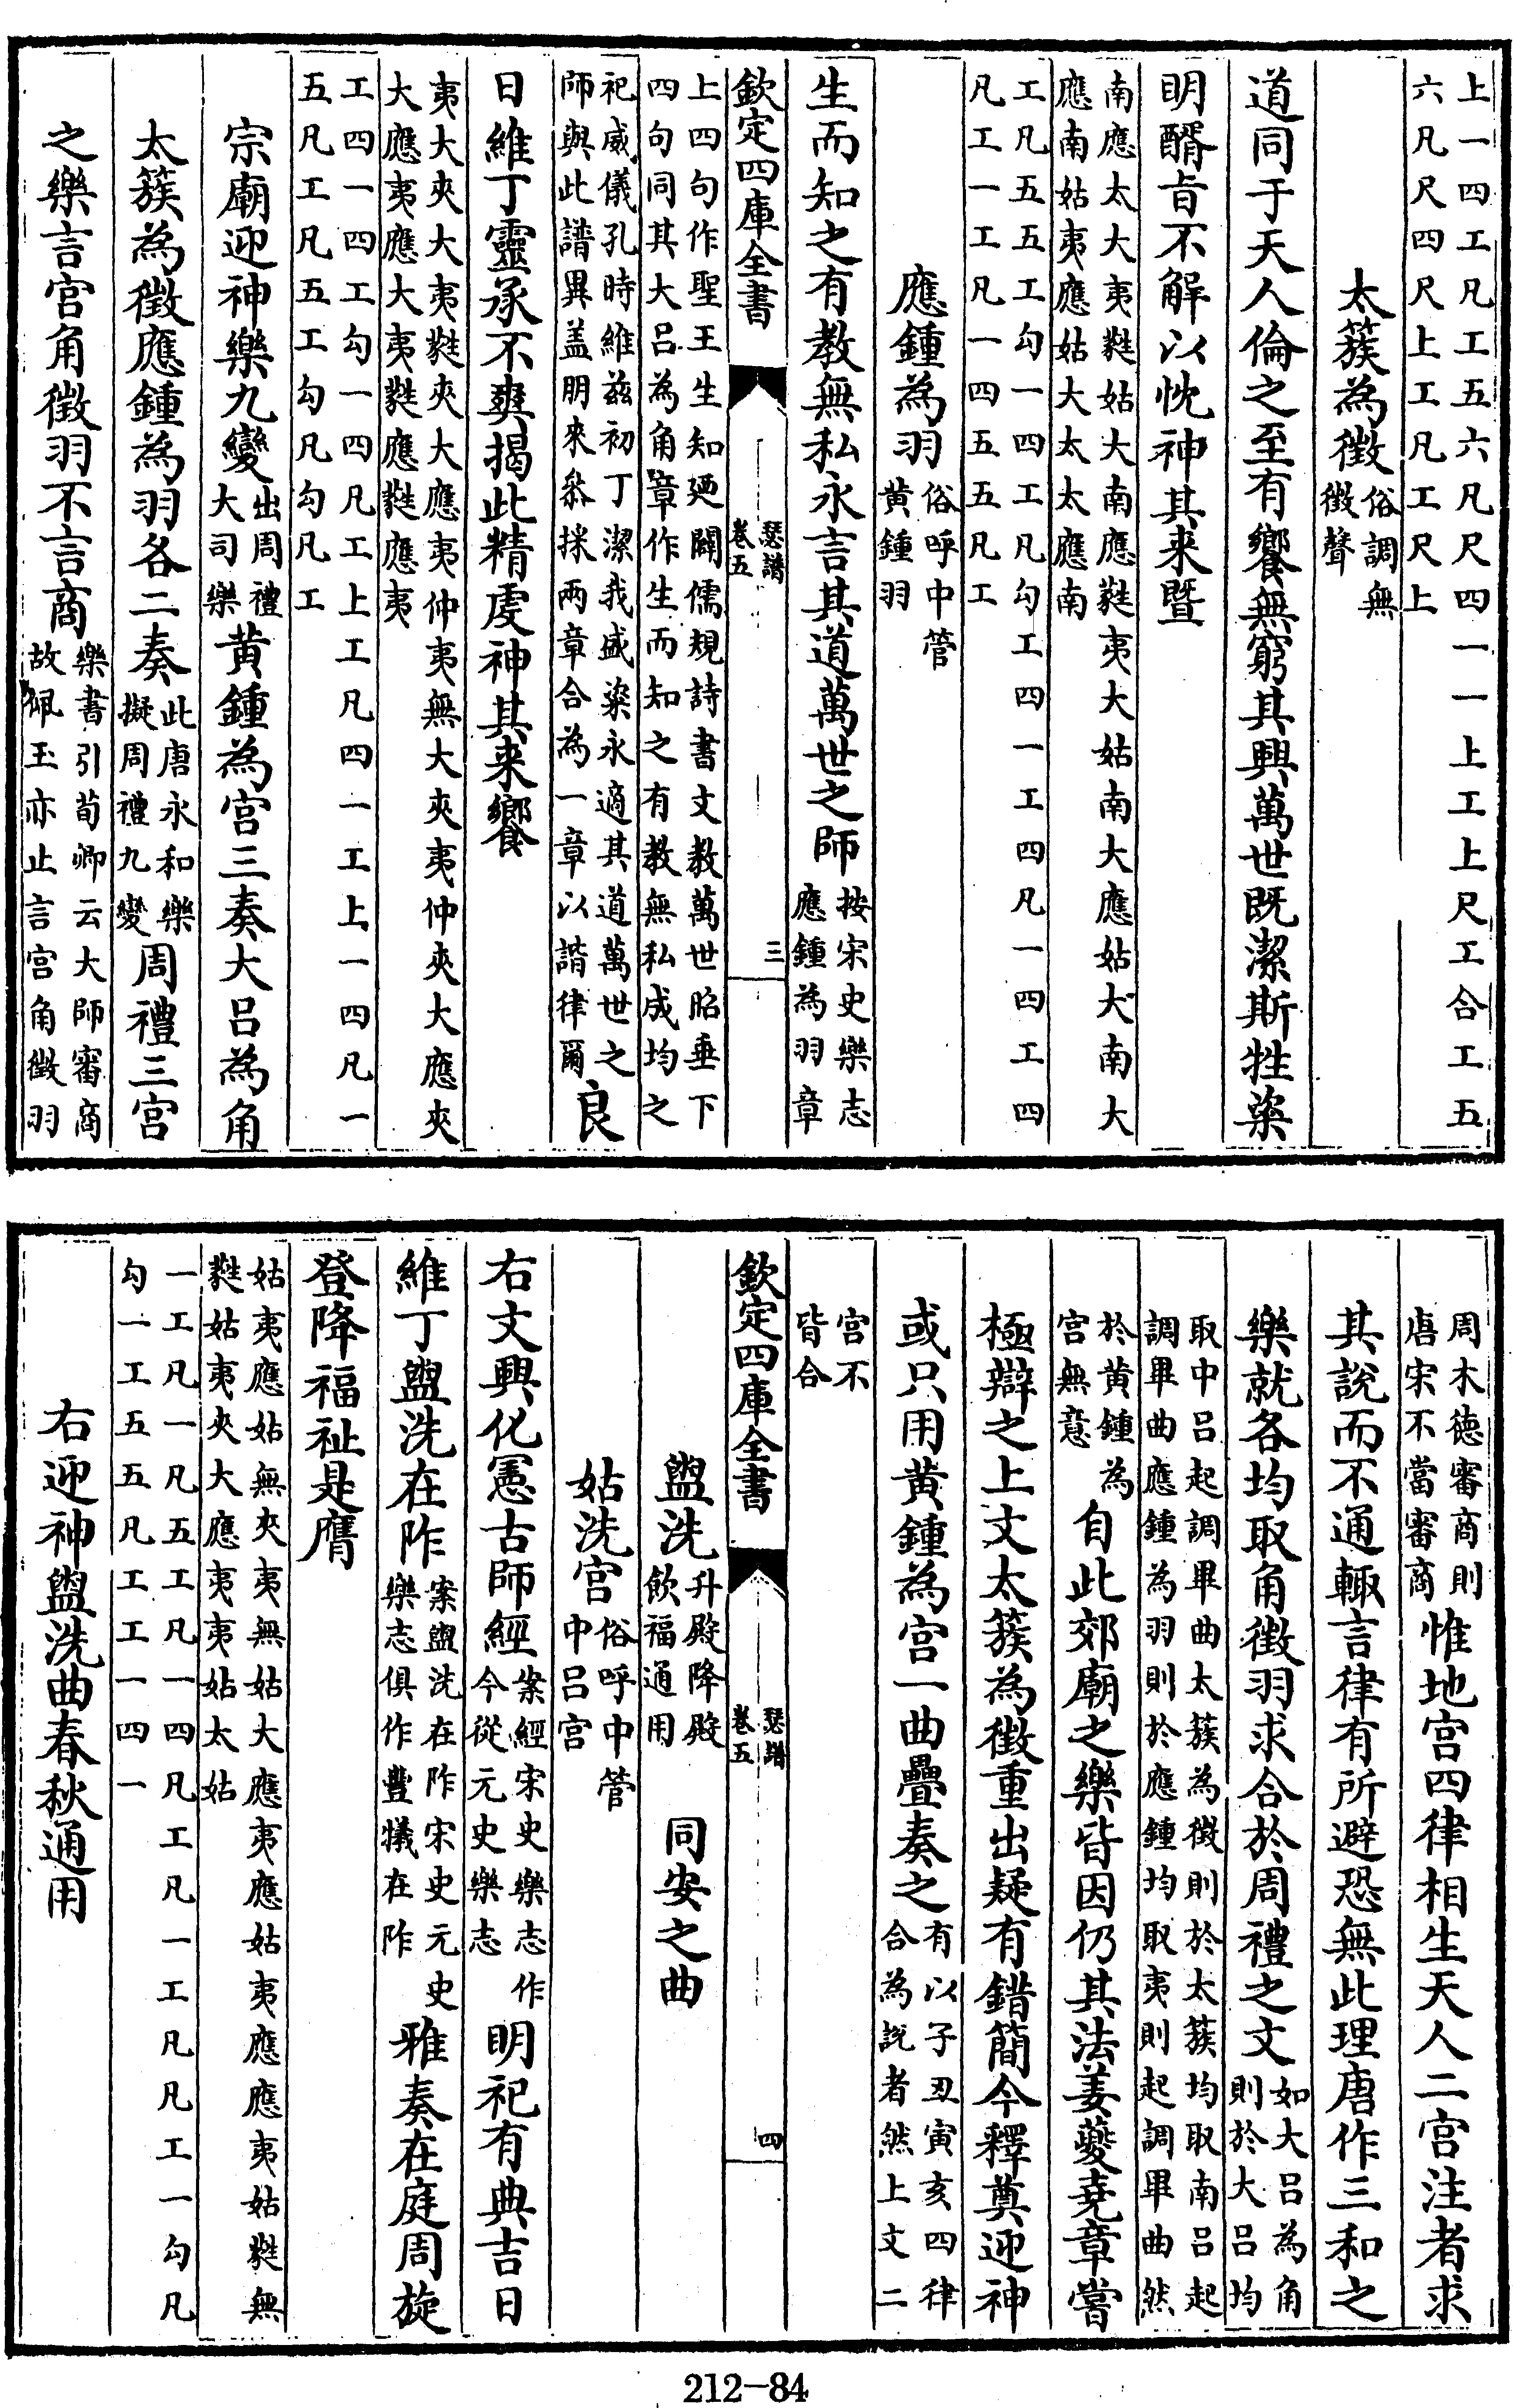 上一四工凡工五六凡尺四一一上工上尺工合工五
六凡尺四尺上工凡工尺上
太簇為徵俗調無徵聲
道同于天人倫之至有饗無窮其興萬世既潔斯牲粢
明醑旨不解以忱神其来暨
南應太大夷蕤姑大南應蕤夷大姑南大應姑大南大
應南姑夷應姑大太太應南
工凡五五工勾一四工凡勾工四一工四凡一四工四
凡工一工凡一四五五凡工
應鍾為羽俗呼中管黄鍾羽
生而知之有教無私永言其道萬世之師按宋史樂志應鍾為羽章
欽定四庫全書 瑟譜 卷五 三
上四句作聖王生知廼闡儒規詩書文教萬世昭垂下
四句同其大吕為角章作生而知之有教無私成均之
祀威儀孔時維兹初丁潔我盛粢永適其道萬世之
師與此譜異盖朋來叅採兩章合為一章以諧律爾良
日維丁靈承不爽揭此精虔神其来饗
夷大夾大夷蕤夾大應夷仲夷無大夾夷仲夾大應夾
大應夷應大夷蕤應蕤應夷
工四一四工勾一四凡工上工凡四一工上一四凡一
五凡工凡五工勾凡勾凡工
宗廟迎神樂九變出周禮大司樂黄鍾為宫三奏大吕為角
太簇為徵應鍾為羽各二奏此唐永和樂擬周禮九變周禮三宫
之樂言宫角徵羽不言商樂書引荀卿云大師審商故佩玉亦止言宫角徵羽
周木徳審商則唐宋不當審商惟地宫四律相生天人二宫注者求
其説而不通輙言律有所避恐無此理唐作三和之
樂就各均取角徵羽求合於周禮之文如大吕為角則於大吕均
取中吕起調畢曲太簇為徵則於太簇均取南吕起
調畢曲應鍾為羽則於應鍾均取夷則起調畢曲然
於黄鍾為宫無意自此郊廟之樂皆因仍其法姜夔堯章嘗
極辯之上文太簇為徵重出疑有錯簡今釋奠迎神
或只用黄鍾為宫一曲疊奏之有以子丑寅亥四律合為説者然上文二
宫不皆合
欽定四庫全書 瑟譜 卷五 四
盥洗升殿降殿飲福通用 同安之曲
姑洗宫俗呼中管中吕宫
右文興化憲古師經案經宋史樂志作今從元史樂志明祀有典吉日
維丁盥洗在阼案盥洗在阼宋史元史樂志俱作豐犧在阼雅奏在庭周旋
登降福祉是膺
姑夷應姑無夾夷無姑姑大應夷應姑夷應應夷姑蕤無
蕤姑夷夾大應夷夷姑太姑
一工凡一凡五工凡一四凡工凡一工凡凡工一勾凡
勾一工五五凡工工一四一
右迎神盥洗曲春秋通用
212-84